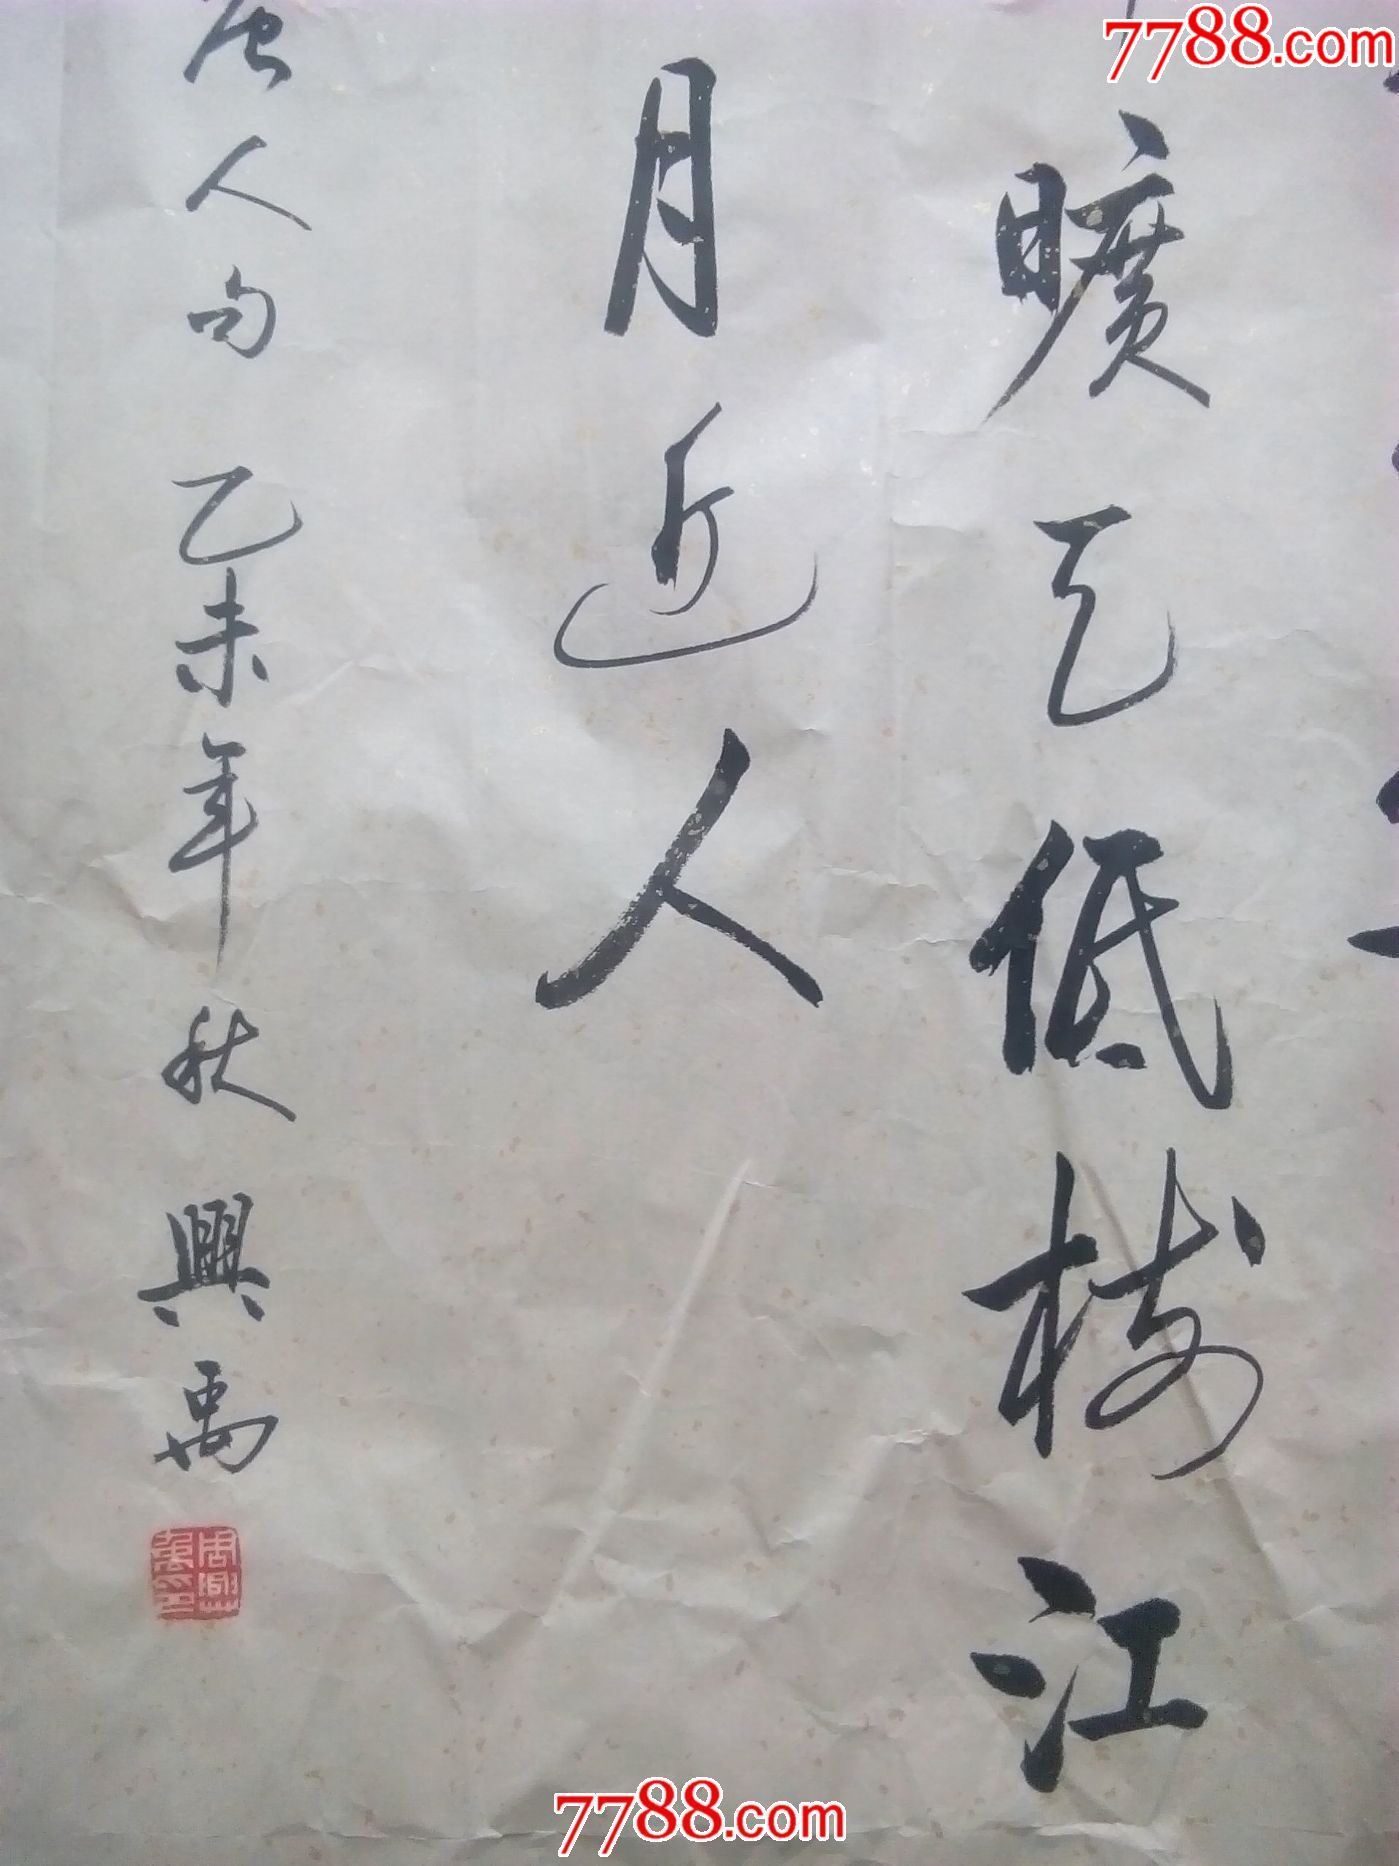 7788.com
曠天低樹江
月近人
唐人句 乙未年秋 興禹
周興禹印
7788.com